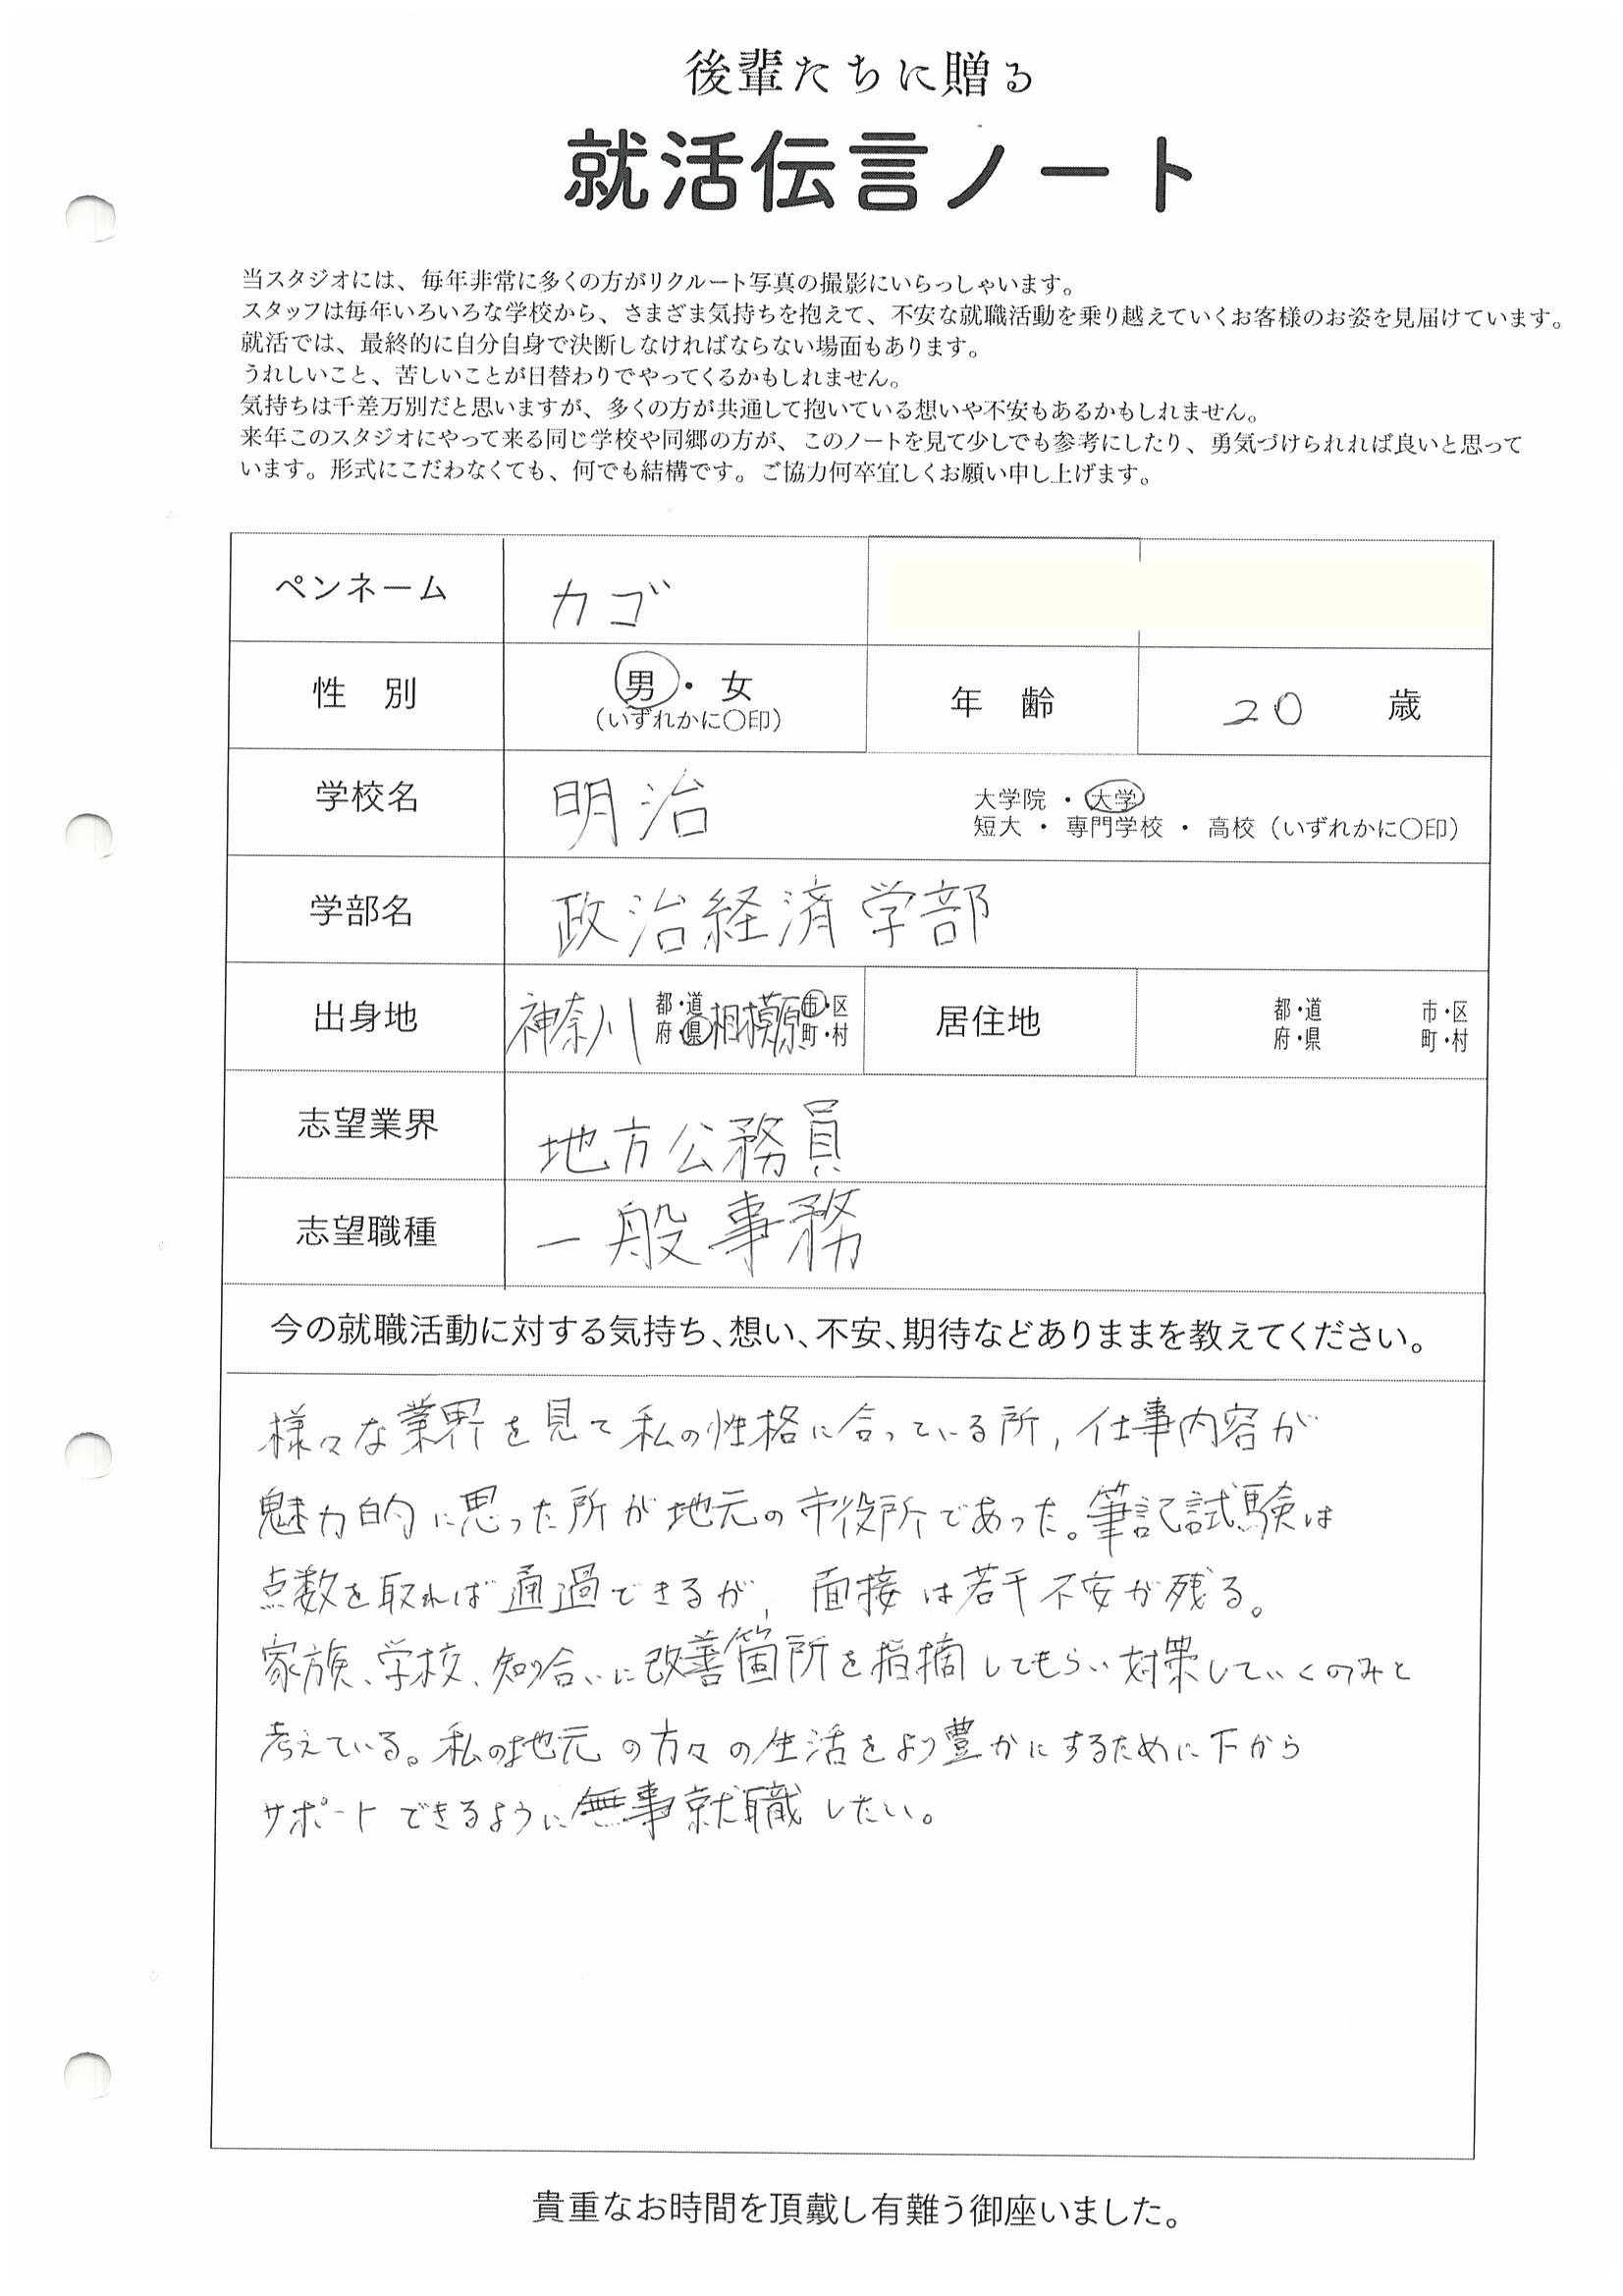 後輩たちに贈る
就活伝言ノート
当スタジオには、毎年非常に多くの方がリクルート写真の撮影にいらっしゃいます。
スタッフは毎年いろいろな学校から、さまざま気持ちを抱えて、不安な就職活動を乗り越えていくお客様のお姿を見届けています。
就活では、最終的に自分自身で決断しなければならない場面もあります。
うれしいこと、苦しいことが日替わりでやってくるかもしれません。
気持ちは千差万別だと思いますが、多くの方が共通して抱いている想いや不安もあるかもしれません。
来年このスタジオにやって来る同じ学校や同郷の方が、このノートを見て少しでも参考にしたり、勇気づけられれば良いと思って
います。形式にこだわなくても、何でも結構です。ご協力何卒宜しくお願い申し上げます。
ペンネーム カゴ
性 別 男・女 (いずれかに〇印) 年 齢 20 歳
学校名 明治 大学院 ・ 大学
短大 ・ 専門学校 ・ 高校(いずれかに〇印)
学部名 政治経済学部
出身地 神奈川 都・道 府・県 相模原 市・区 町・村 居住地 都・道 府・県 市・区 町・村
志望業界 地方公務員
志望職種 一般事務
今の就職活動に対する気持ち、想い、不安、期待などありままを教えてください。
様々な業界を見て私の性格に合っている所, 仕事内容が
魅力的に思った所が地元の市役所であった。筆記試験は
点数を取れば通過できるが, 面接は若干不安が残る。
家族、学校、知り合いに改善箇所を指摘してもらい対策していくのみと
考えている。私の地元の方々の生活をより豊かにするために下から
サポートできるように無事就職したい。
貴重なお時間を頂戴し有難う御座いました。